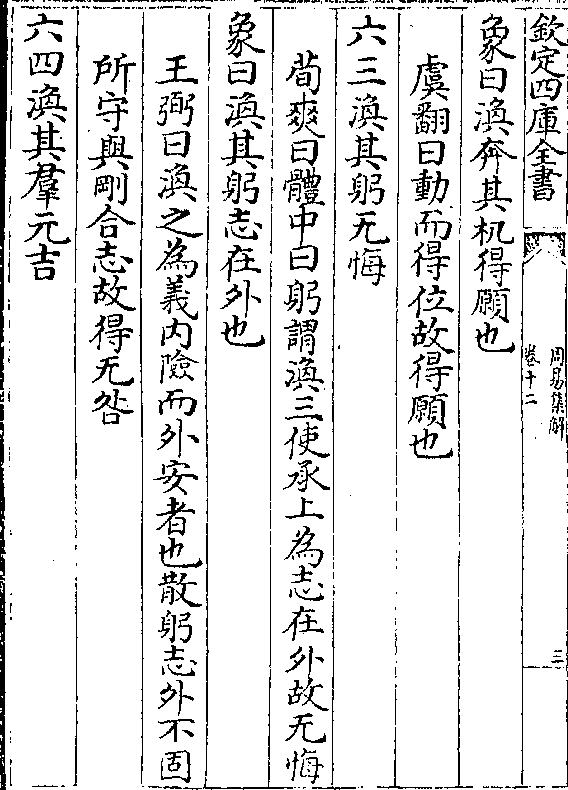 欽定四庫全書
周易集解
卷十二
三
象曰渙奔其机得願也
虞翻曰動而得位故得願也
六三渙其躬无悔
荀爽曰體中曰躬謂渙三使承上為志在外故无悔
象曰渙其躬志在外也
王弼曰渙之為義内險而外安者也散躬志外不固
所守與剛合志故得无咎
六四渙其羣元吉